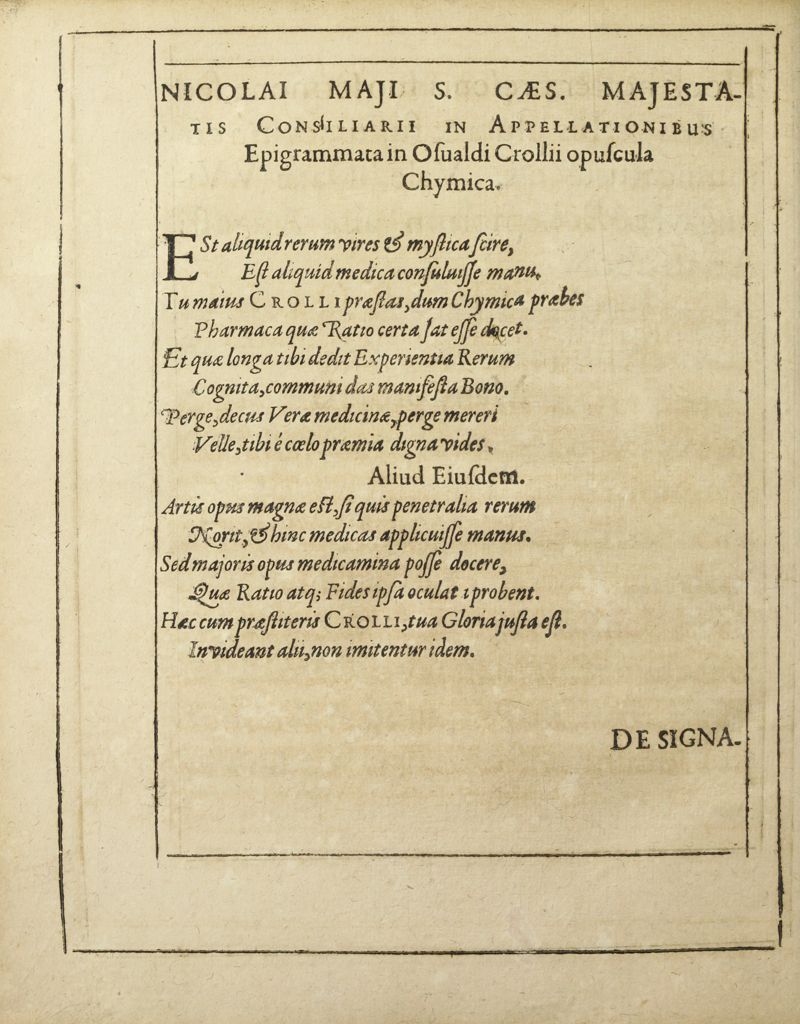 NICOLAI MAJI S. CÆS. MAJESTA-
TIS CONSILIARII IN APPELLATIONIBUS
Epigrammata in Oſualdi Crollii opuſcula
Chymica.
ESt aliquid rerum vires & myſtica ſcire,
Eſt aliquid medica conſuluiſſe manu,
Tu maius CROLLI præſtas, dum Chymica præbes
Pharmaca quæ Ratio certa ſat eſſe docet.
Et quæ longa tibi dedit Experientia Rerum
Cognita, communi das manifeſta Bono.
Perge, decus Veræ medicinæ, perge mereri
Velle, tibi é cœlo præmia digna vides,
Aliud Eiuſdem.
Artis opus magnæ eſt, ſi quis penetralia rerum
Norit, & hinc medicas applicuiſſe manus.
Sed majoris opus medicamina poſſe docere,
Quæ Ratio atq; Fides ipſa oculat i probent.
Hæc cum præſtiteris CROLLI, tua Gloria juſta eſt.
Invideant alii, non imitentur idem.
DE SIGNA-